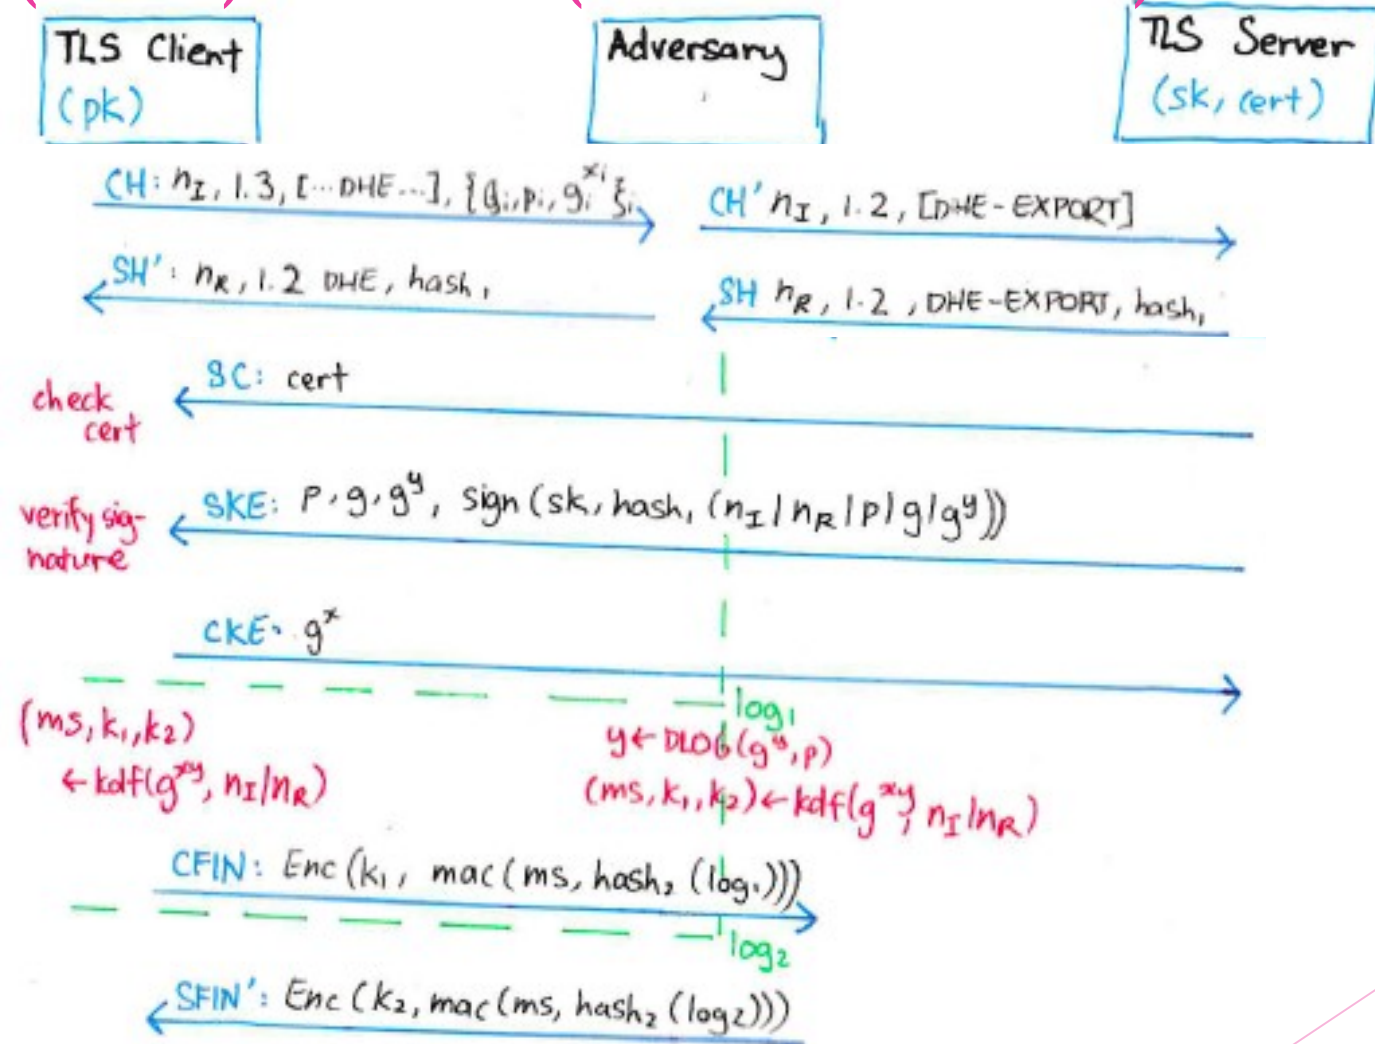 TLS Client
(pk)
Adversary
TLS Server
(sk, cert)
CH: n_I, 1.3, [...DHE...], {g_i, p_i, g_i^{x_i}}_i
CH' n_I, 1.2, [DHE-EXPORT]
SH': n_R, 1.2 DHE, hash_1
SH n_R, 1.2, DHE-EXPORT, hash_1
check
cert
SC: cert
verify sig-
nature
SKE: p, g, g^y, sign(sk, hash_1(n_I|n_R|p|g|g^y))
CKE: g^x
log_1
(ms, k_1, k_2)
← kdf(g^{xy}, n_I|n_R)
y ← DLOG(g^y, p)
(ms, k_1, k_2) ← kdf(g^{xy}, n_I|n_R)
CFIN: Enc(k_1, mac(ms, hash_2(log_1)))
log_2
SFIN': Enc(k_2, mac(ms, hash_2(log_2)))